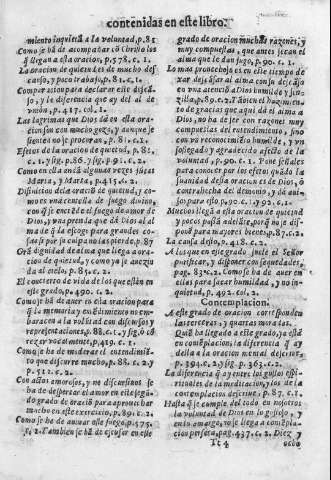 contenidas en este libro.
miento inquieta a la voluntad, p.85
Como se ha de acompañar cõ Christo los
q̃ llegan a esta oracion, p.578. c. 1.
La oracion de quietud es de mucho des-
canso, y poco trabajo, p.81. c. 1.
Comparacion para declarar este descã-
so, y la diferencia que ay del al de
union, p. 417. col. 2.
Las lagrimas que Dios dà en esta ora-
cion son con mucho gozo, y aunque se
sienten no se procuran, p. 81. c. 2.
Efetos de la oracion de quietud, p. 81.
c. 1. y sig. 86. y sig. p 91. c. 2.
Como en ella andã algunas vezes jũtas
Marta, y Maria, p 415. c. 2.
Difinicion dela oraciõ de quietud, y co-
mo es una centella de fuego divino,
con q̃ se enciende el fuego de amor de
Dios, y una prenda que dà Dios al al
ma de q̃ la escoge para grandes co-
sas si por su culpa no las pierde, p.87
Grã dignidad de alma que llega a ora-
cion de quietud, y como ya se avezin
da al cielo. p. 85. c. 2.
El concierto de vida de los que estàn en
este grado, p.490. c. 2.
Como se ha de aver en esta oracion para
q̃ la memoria y entẽdimiento no em-
baracen a la volũtad con discursos y
representaciones, p. 88. c. 1. y sig. ò cõ
rezar vocalmente, p. 419. c. 1.
Como se ha de moderar el entendimiẽ-
to que discurre mucho, p.88. c. 2. y
p. 512. c. 2.
Con actos amorosos, y no discursivos se
ha de despertar el amor en este segũ-
do grado de oraciõ para aprovechar
mucho en este exercicio, p. 89. c. 2.
Como se ha de avivar este fuego, p. 575.
c. 2. Tambien se hã de escusar en este
grado de oracion muchas razones, y
muy compuestas, que antes secan el
alma que le dan jugo, p.90. c. 1.
Lo mas provechoso es en este tiempo de-
xar dexar al alma en su descanso con
una atenciõ a Dios humilde y sen-
zilla, p. 89. c. 2. Tãbien el hazimien-
to de gracias que aqui dà el alma a
Dios, no ha de ser con razones muy
compuestas del entendimiento, sino
con un reconocimiẽto humilde, y un
sossegado y agradecido afecto de la
voluntad, p. 90. c. 1. Pone señales
para conocer por los efetos quãdo la
suavidad desta oraciõ es de Dios, ò
contrahecha del demonio, y dà avi-
sos para esso, p.90. c. 1. y 92. c. 1.
Muchos llegan a esta oracion de quietud
y pocos passan adelãte, porq̃ no se dis-
ponẽ para mayores bienes, p.87. c. 2.
La causa desto, p. 418. c. 2.
A los que en este grado pide el Señor
purificar, y disponer con sequedades,
pag. 83. c. 2. Como se ha de aver en
ellas para sacar humildad, y no in-
quietud, p. 492. col. 2.
Contemplacion.
A este grado de oracion corresponden
las terceras, y quartas moradas.
Quiẽ ha llegado a este grado, ya està
en contẽplacion, la diferencia q̃ ay
della a la oracion mental dezirse,
p. 394. c. 2. y sig. p. 363. c. 2.
La diferencia q̃ ay entre los gustos espi-
rituales de la meditacion, y los de la
contemplacion dezirse. p. 87. c. 1.
Hasta q̃ se cumple del todo en nosotros
la voluntad de Dios en lo gustoso, y
en lo amargo, no se llega a contẽpla-
cion perfeta, pag. 437. c. 2. Diez y
Tt 4